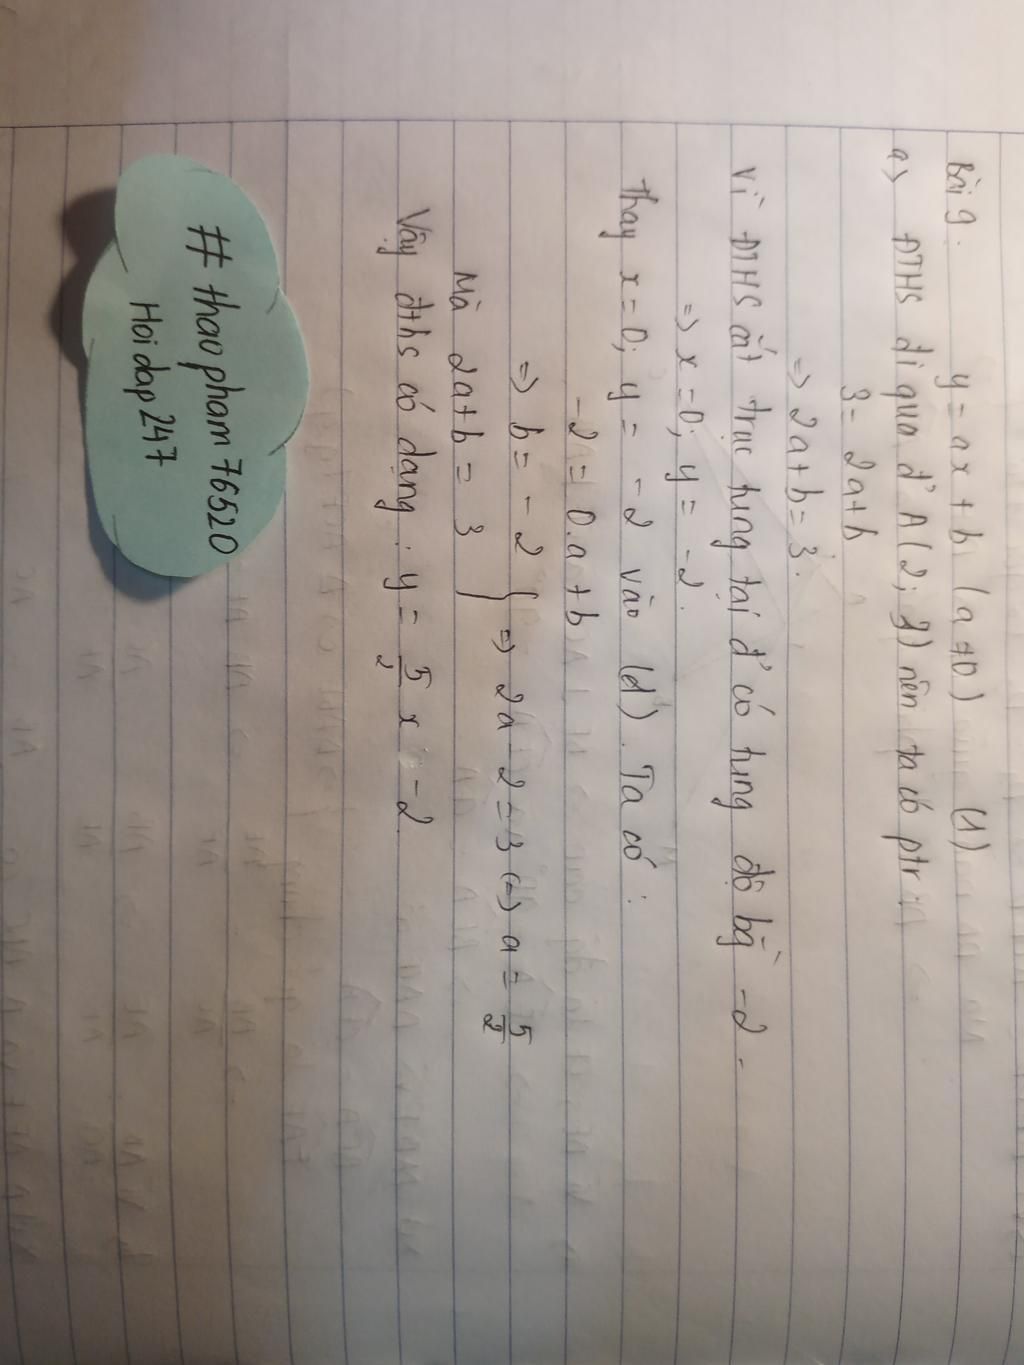 Bài 9. y = ax + b (a ≠ 0) (1)
a) ĐTHS đi qua đ' A(2; 3) nên ta có ptr:
3 = 2a + b
=> 2a + b = 3.
Vì ĐTHS cắt trục tung tại đ' có tung độ bằ -2.
=> x = 0; y = -2.
Thay x = 0; y = -2 vào (d). Ta có:
-2 = 0.a + b
=> b = -2 } => 2a - 2 = 3 (=) a = 5/2
Mà 2a + b = 3
Vậy đths có dạng: y = 5/2 x - 2
# thaopham76520
Hoidap247